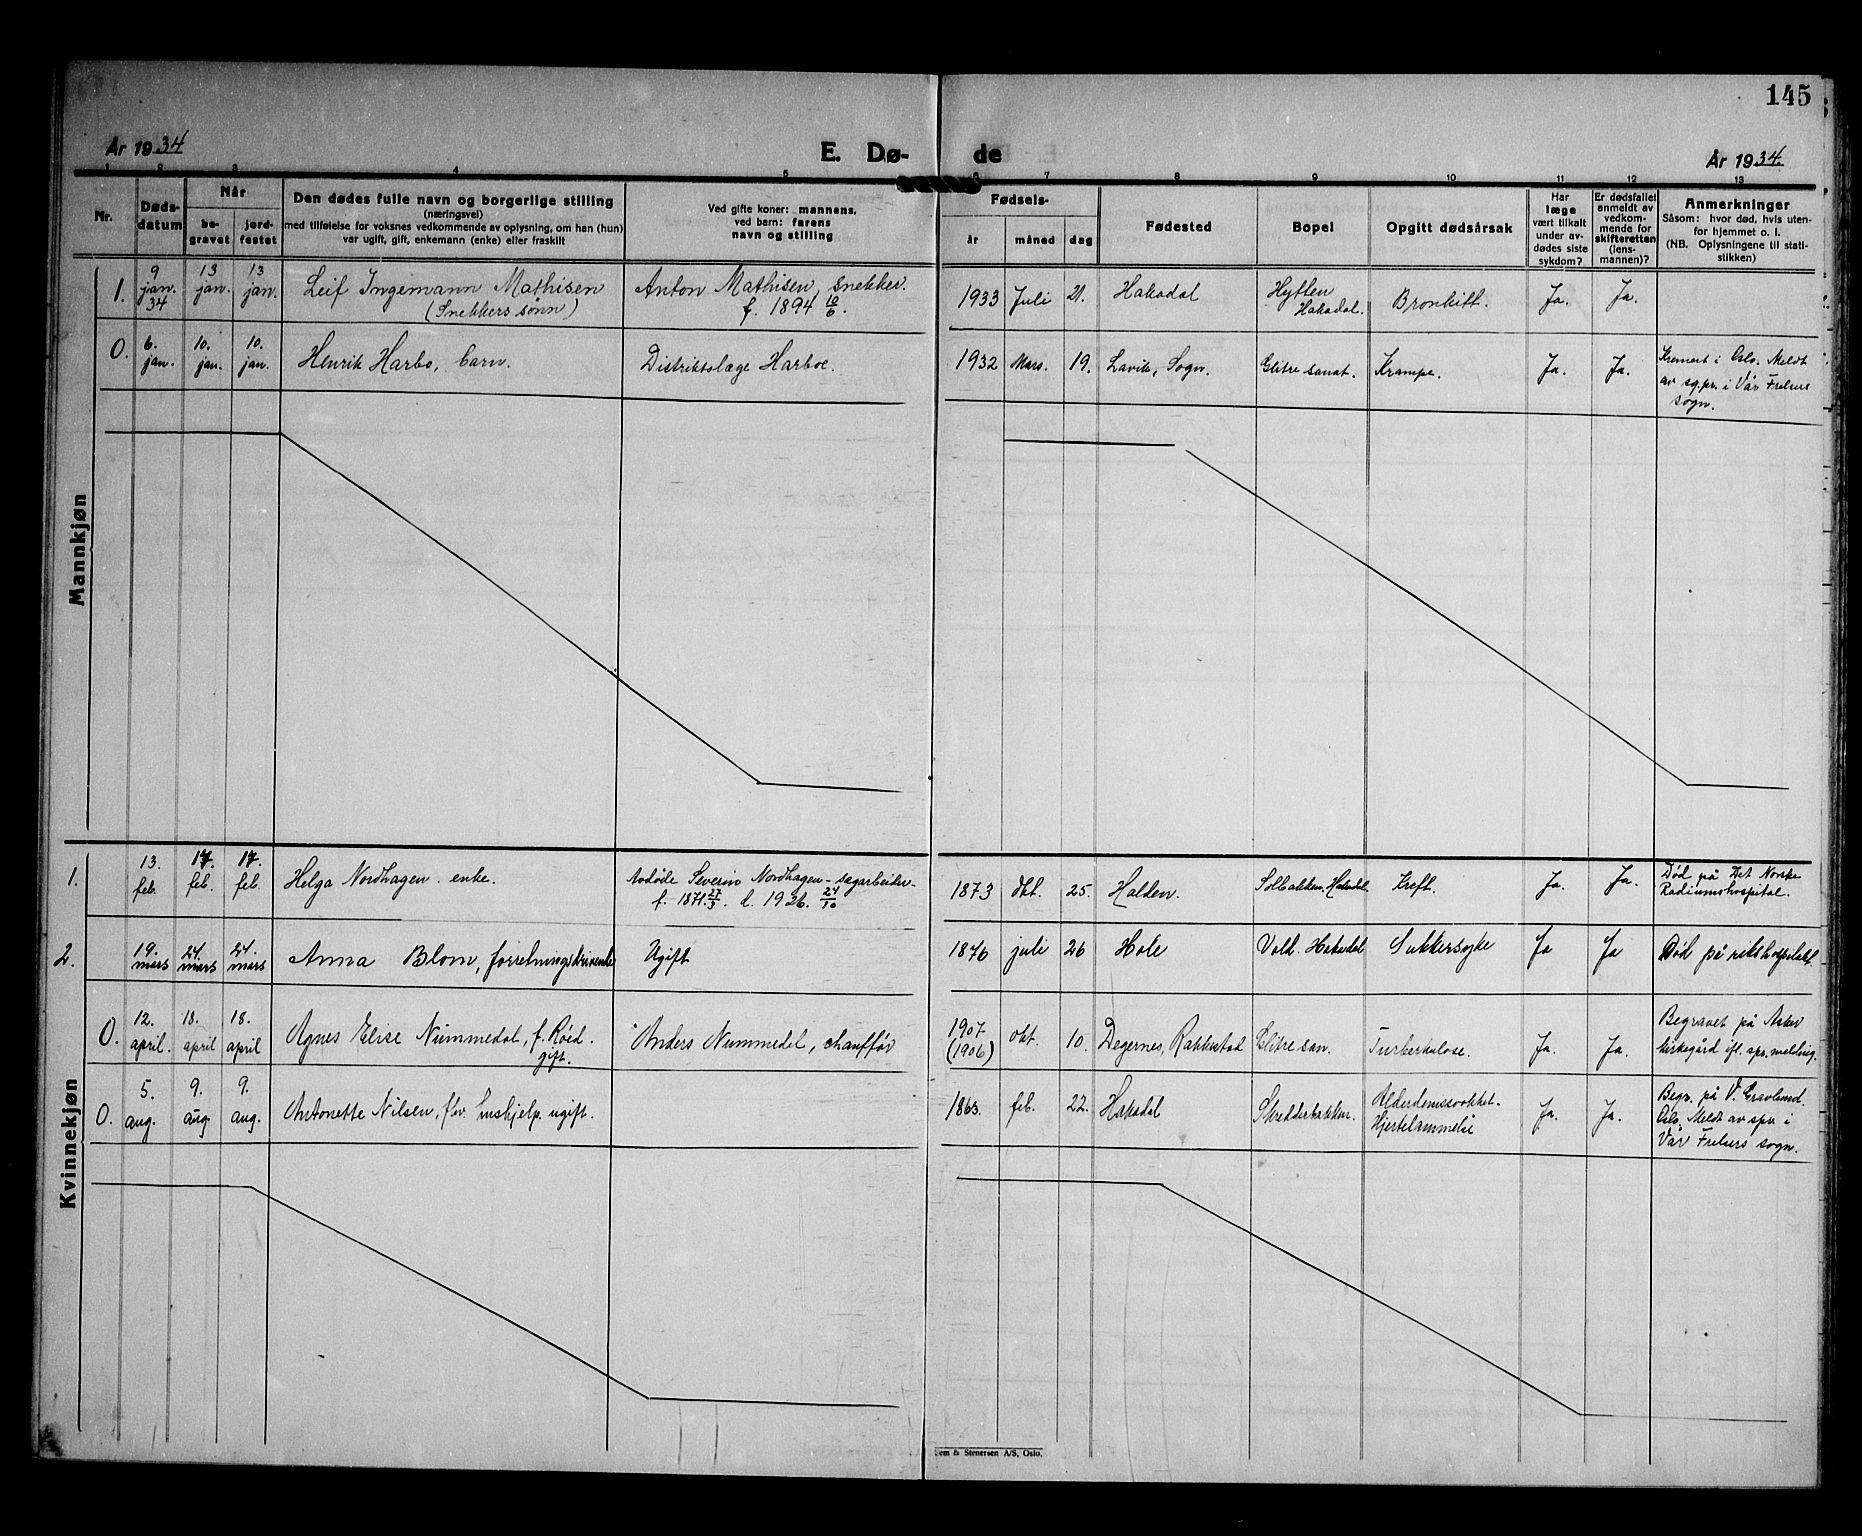 145
År 1934
E. Dø-
de
År 1934.
1 2 3 4 5 6 7 8 9 10 11 12 13
Nr.
Døds-
datum
Når
be-
gravet
jord-
festet
Den dødes fulle navn og borgerlige stilling
(næringsvei)
med tilføielse for voksnes vedkommende av oplysning, om han (hun)
var ugift, gift, enkemann (enke) eller fraskilt
Ved gifte koner: mannens,
ved barn: farens
navn og stilling
Fødsels-
år
måned
dag
Fødested
Bopel
Opgitt dødsårsak
Har
læge
vært tilkalt
under av-
dødes siste
sykdom?
Er dødsfallet
anmeldt av
vedkom-
mende for
skifteretten
(lens-
mannen)?
Anmerkninger
Såsom: hvor død, hvis uten-
for hjemmet o. l.
(NB. Oplysningene til stati-
stikken)
Mannkjøn
1.
9
jan.
34
13
jan.
13
jan.
Leif Ingemann Mathisen
(Snekkers sønn)
Anton Mathisen, snekker.
f. 1894 10/6.
1933 Juli 21. Hakadal
Hytten
Hakadal.
Bronkitt. Ja. Ja.
0.
6.
jan.
10.
jan.
10.
jan.
Henrik Harbo, barn.
Distriktslæge Harboe.
1932 Mars. 19. Lavik, Sogn. Glitre sanat. Krampe. Ja. Ja.
Kremert i Oslo. Meldt
av sg.pr. i Vår Frelsers
sogn.
Kvinnekjøn
1.
13.
feb.
17.
feb.
17.
feb.
Helga Nordhagen. enke.
Avdøde Severin Nordhagen - sagarbeider -
f. 1871 27/3. d. 1926. 24/10
1873 okt. 25. Halden. Solbakken. Hakadal. Kreft. Ja. Ja.
Død på Det Norske
Radiumshospital.
2.
19.
mars
24.
mars
24.
mars
Anna Blom, forretningsdrivende
Ugift
1876 juli 26 Hole Vold. Hakadal Sukkersyke Ja Ja Død på rikshospitalet
0.
12.
april.
18.
april
18.
april
Agnes Elise Nummedal, f. Røed.
gift.
Anders Nummedal, chauffør
1907
(1906)
okt. 10. Degernes, Rakkestad Glitre san. Turberkulose. Ja. Ja.
Begravet på Asker
kirkegård ifl. spr. melding.
0.
5.
aug.
9.
aug.
9.
aug.
Antonette Nilsen, ugift.
1863. feb. 22. Hakadal Skredderbakken.
Hjertelammelse
Ja. Ja.
Begr. på V. Gravlund.
Oslo. Meldt av spr. i
Vår Frelsers sogn.
& Stenersen A/S, Oslo.